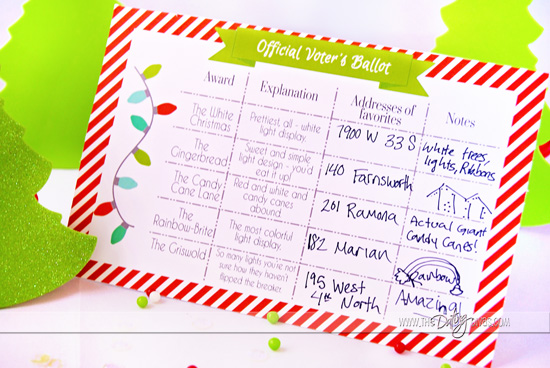 Official Voter's Ballot
Award Explanation Addresses of favorites Notes
The White
Christmas
Prettiest, all - white
light display
7900 W 33 S
White trees,
lights, Ribbons
The
Gingerbread
Sweet and simple
light design - you'd
eat it up!
140 Farnsworth
The Candy
Cane Lane
Red and white and
candy canes
abound
201 Ramona
Actual Giant
Candy Canes!
The
Rainbow-Brite
The most colorful
light display
182 Marian
Rainbow
The Griswold
So many lights you're
not sure how they haven't
flipped the breaker
195 West
4th North
Amazing!
www.TheDatingDivas.com